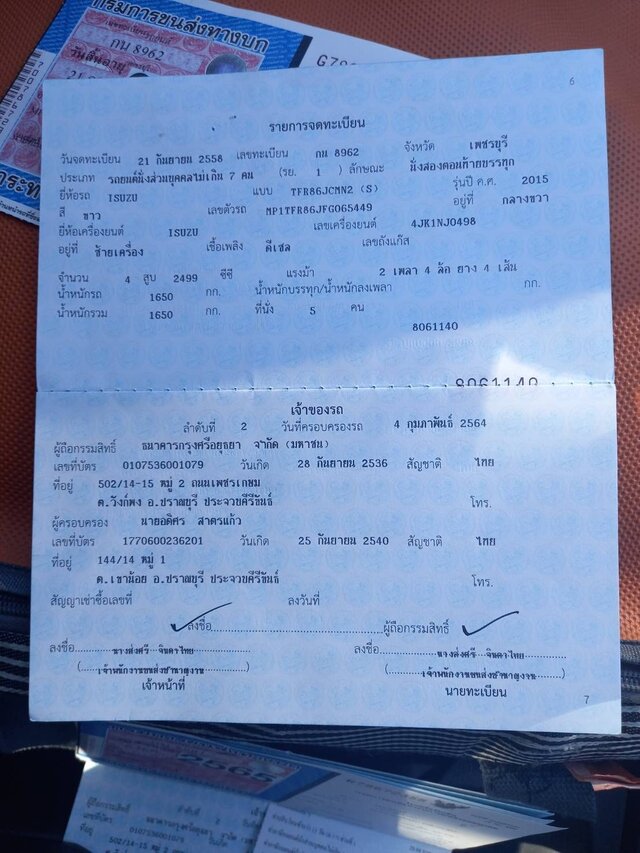 กรมการขนส่งทางบก
กน 8962
วันสิ้นอายุ
6
รายการจดทะเบียน
วันจดทะเบียน 21 กันยายน 2558 เลขทะเบียน กน 8962 จังหวัด เพชรบุรี
ประเภท รถยนต์นั่งส่วนบุคคลไม่เกิน 7 คน (รย. 1 ) ลักษณะ นั่งสองตอนท้ายบรรทุก
ยี่ห้อรถ ISUZU แบบ TFR86JCMN2 (S) รุ่นปี ค.ศ. 2015
สี ขาว เลขตัวรถ MP1TFR86JFG065449 อยู่ที่ กลางขวา
ยี่ห้อเครื่องยนต์ ISUZU เลขเครื่องยนต์ 4JK1NJ0498
อยู่ที่ ซ้ายเครื่อง เชื้อเพลิง ดีเซล เลขถังแก๊ส
จำนวน 4 สูบ 2499 ซีซี แรงม้า 2 เพลา 4 ล้อ ยาง 4 เส้น
น้ำหนักรถ 1650 กก. น้ำหนักบรรทุก/น้ำหนักลงเพลา กก.
น้ำหนักรวม 1650 กก. ที่นั่ง 5 คน
8061140
8061140
เจ้าของรถ
ลำดับที่ 2 วันที่ครอบครองรถ 4 กุมภาพันธ์ 2564
ผู้ถือกรรมสิทธิ์ ธนาคารกรุงศรีอยุธยา จำกัด (มหาชน)
เลขที่บัตร 0107536001079 วันเกิด 28 กันยายน 2536 สัญชาติ ไทย
ที่อยู่ 502/14-15 หมู่ 2 ถนนเพชรเกษม
ต.วังก์พง อ.ปราณบุรี ประจวบคีรีขันธ์ โทร.
ผู้ครอบครอง นายอดิศร สาตรแก้ว
เลขที่บัตร 1770600236201 วันเกิด 25 กันยายน 2540 สัญชาติ ไทย
ที่อยู่ 144/14 หมู่ 1
ต.เขาน้อย อ.ปราณบุรี ประจวบคีรีขันธ์ โทร.
สัญญาเช่าซื้อเลขที่ ลงวันที่
ลงชื่อ ผู้ถือกรรมสิทธิ์
ลงชื่อ นางส่งศรี จินดาไทย ลงชื่อ นางส่งศรี จินดาไทย
(เจ้าพนักงานขนส่งชำนาญงาน) (เจ้าพนักงานขนส่งชำนาญงาน)
เจ้าหน้าที่ นายทะเบียน
7
2565
ผู้ถือกรรมสิทธิ์ ลำดับที่ 2
เลขที่บัตร 0107536001079
ที่อยู่ 502/14-15 หมู่ 2